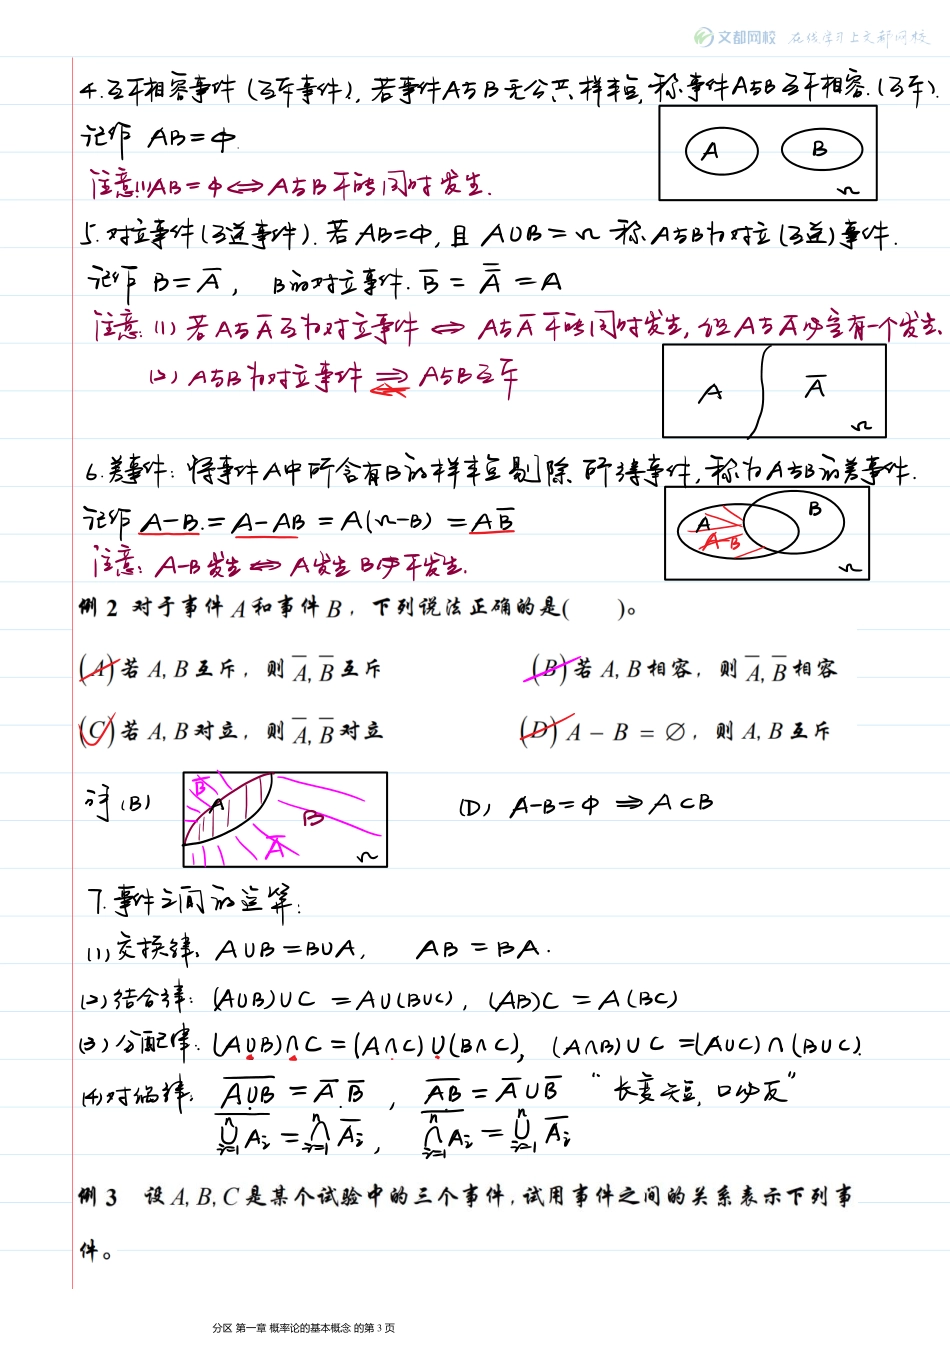 文都网校 在线学习上文都网校
4.互不相容事件(互斥事件).若事件A与B无公共样本点,称事件A与B互不相容.(互斥).
记作 AB=φ.
A B Ω
注意:(1)AB=φ⟺A与B不能同时发生.
5.对立事件(互逆事件).若AB=φ,且 A∪B=Ω 称A与B为对立(互逆)事件.
记作 B=A̅, B的对立事件. B̅ = A̿ = A
注意:(1)若A与A̅互为对立事件 ⟺ A与A̅不能同时发生,但A与A̅必定有一个发生.
(2) A与B为对立事件 ⇒ A与B互斥
A A̅ Ω
6.差事件:将事件A中所含有B的样本点剔除 所得事件,称为A与B的差事件.
记作 A-B.=A-AB=A(Ω-B)=AB̅
A B A-B Ω
注意:A-B发生⟺A发生B必不发生.
例 2 对于事件 A 和事件 B，下列说法正确的是( )。
(A) 若 A, B 互斥，则 A̅, B̅ 互斥 (B) 若 A, B 相容，则 A̅, B̅ 相容
(C) 若 A, B 对立，则 A̅, B̅ 对立 (D) A − B = ∅，则 A, B 互斥
(B) B̅ A B A̅ Ω (D) A-B=φ ⇒ A⊂B
7.事件之间的运算:
(1)交换律. A∪B=B∪A, AB=BA.
(2)结合律: (A∪B)∪C=A∪(B∪C), (AB)C=A(BC)
(3)分配律: (A∪B)∩C=(A∩C)∪(B∩C), (A∩B)∪C=(A∪C)∩(B∪C).
(4)对偶律: \overline{A∪B}=A̅.B̅, \overline{AB}=A̅∪B̅ “长变短,口必反”
\overline{⋃_{i=1}^{n} A_i}=⋂_{i=1}^{n} A̅_i, \overline{⋂_{i=1}^{n} A_i}=⋃_{i=1}^{n} A̅_i
例 3 设 A, B, C 是某个试验中的三个事件,试用事件之间的关系表示下列事
件。
分区 第一章 概率论的基本概念 的第 3 页